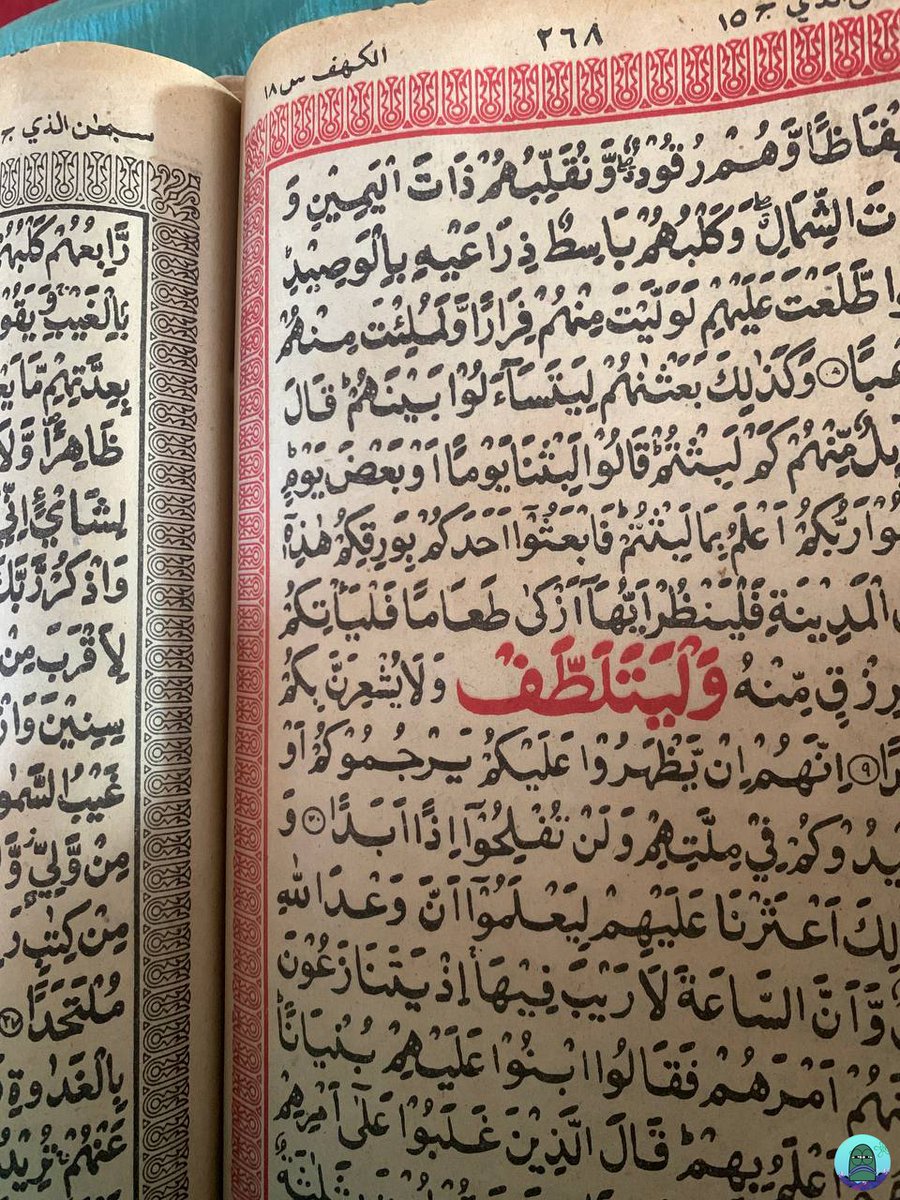 الذي ج ١٥ ٢٦٨ الكهف س ١٨
وَّهُمْ رُقُوْدٌ ۖ وَّنُقَلِّبُهُمْ ذَاتَ الْيَمِيْنِ وَ
الشِّمَالِ ۖ وَكَلْبُهُمْ بَاسِطٌ ذِرَاعَيْهِ بِالْوَصِيْدِ ؕ
اطَّلَعْتَ عَلَيْهِمْ لَوَلَّيْتَ مِنْهُمْ فِرَارًا وَّلَمُلِئْتَ مِنْهُمْ
وَكَذٰلِكَ بَعَثْنٰهُمْ لِيَتَسَآءَلُوْا بَيْنَهُمْ ؕ قَالَ
مِّنْهُمْ كَمْ لَبِثْتُمْ ؕ قَالُوْا لَبِثْنَا يَوْمًا اَوْ بَعْضَ يَوْمٍ ؕ
رَبُّكُمْ اَعْلَمُ بِمَا لَبِثْتُمْ ؕ فَابْعَثُوْۤا اَحَدَكُمْ بِوَرِقِكُمْ هٰذِهٖۤ
الْمَدِيْنَةِ فَلْيَنْظُرْ اَيُّهَاۤ اَزْكٰى طَعَامًا فَلْيَاْتِكُمْ
بِرِزْقٍ مِّنْهُ وَلْيَتَلَطَّفْ وَلَا يُشْعِرَنَّ بِكُمْ
اِنَّهُمْ اِنْ يَّظْهَرُوْا عَلَيْكُمْ يَرْجُمُوْكُمْ اَوْ
فِيْ مِلَّتِهِمْ وَلَنْ تُفْلِحُوْۤا اِذًا اَبَدًا ۲۰ وَ
اَعْثَرْنَا عَلَيْهِمْ لِيَعْلَمُوْۤا اَنَّ وَعْدَ اللّٰهِ
وَّاَنَّ السَّاعَةَ لَا رَيْبَ فِيْهَا ۚ اِذْ يَتَنَازَعُوْنَ
اَمْرَهُمْ فَقَالُوا ابْنُوْا عَلَيْهِمْ بُنْيَانًا ؕ
بِهِمْ ؕ قَالَ الَّذِيْنَ غَلَبُوْا عَلٰۤى اَمْرِهِمْ
سبحٰن الذي
رَّابِعُهُمْ كَلْبُهُمْ
بِالْغَيْبِ ۚ وَيَقُوْ
بِعِدَّتِهِمْ مَّا
ظَاهِرًا ۪ وَّلَا
لِشَایْءٍ اِنِّيْ
وَاذْكُرْ رَّبَّكَ
لِاَقْرَبَ مِنْ
سِنِيْنَ
غَيْبُ السَّمٰو
مِنْ وَّلِيٍّ
مِنْ كِتَابِ
مُلْتَحَدًا ۲۷
بِالْغَدٰوةِ
عَنْهُمْ ۚ تُرِيْدُ